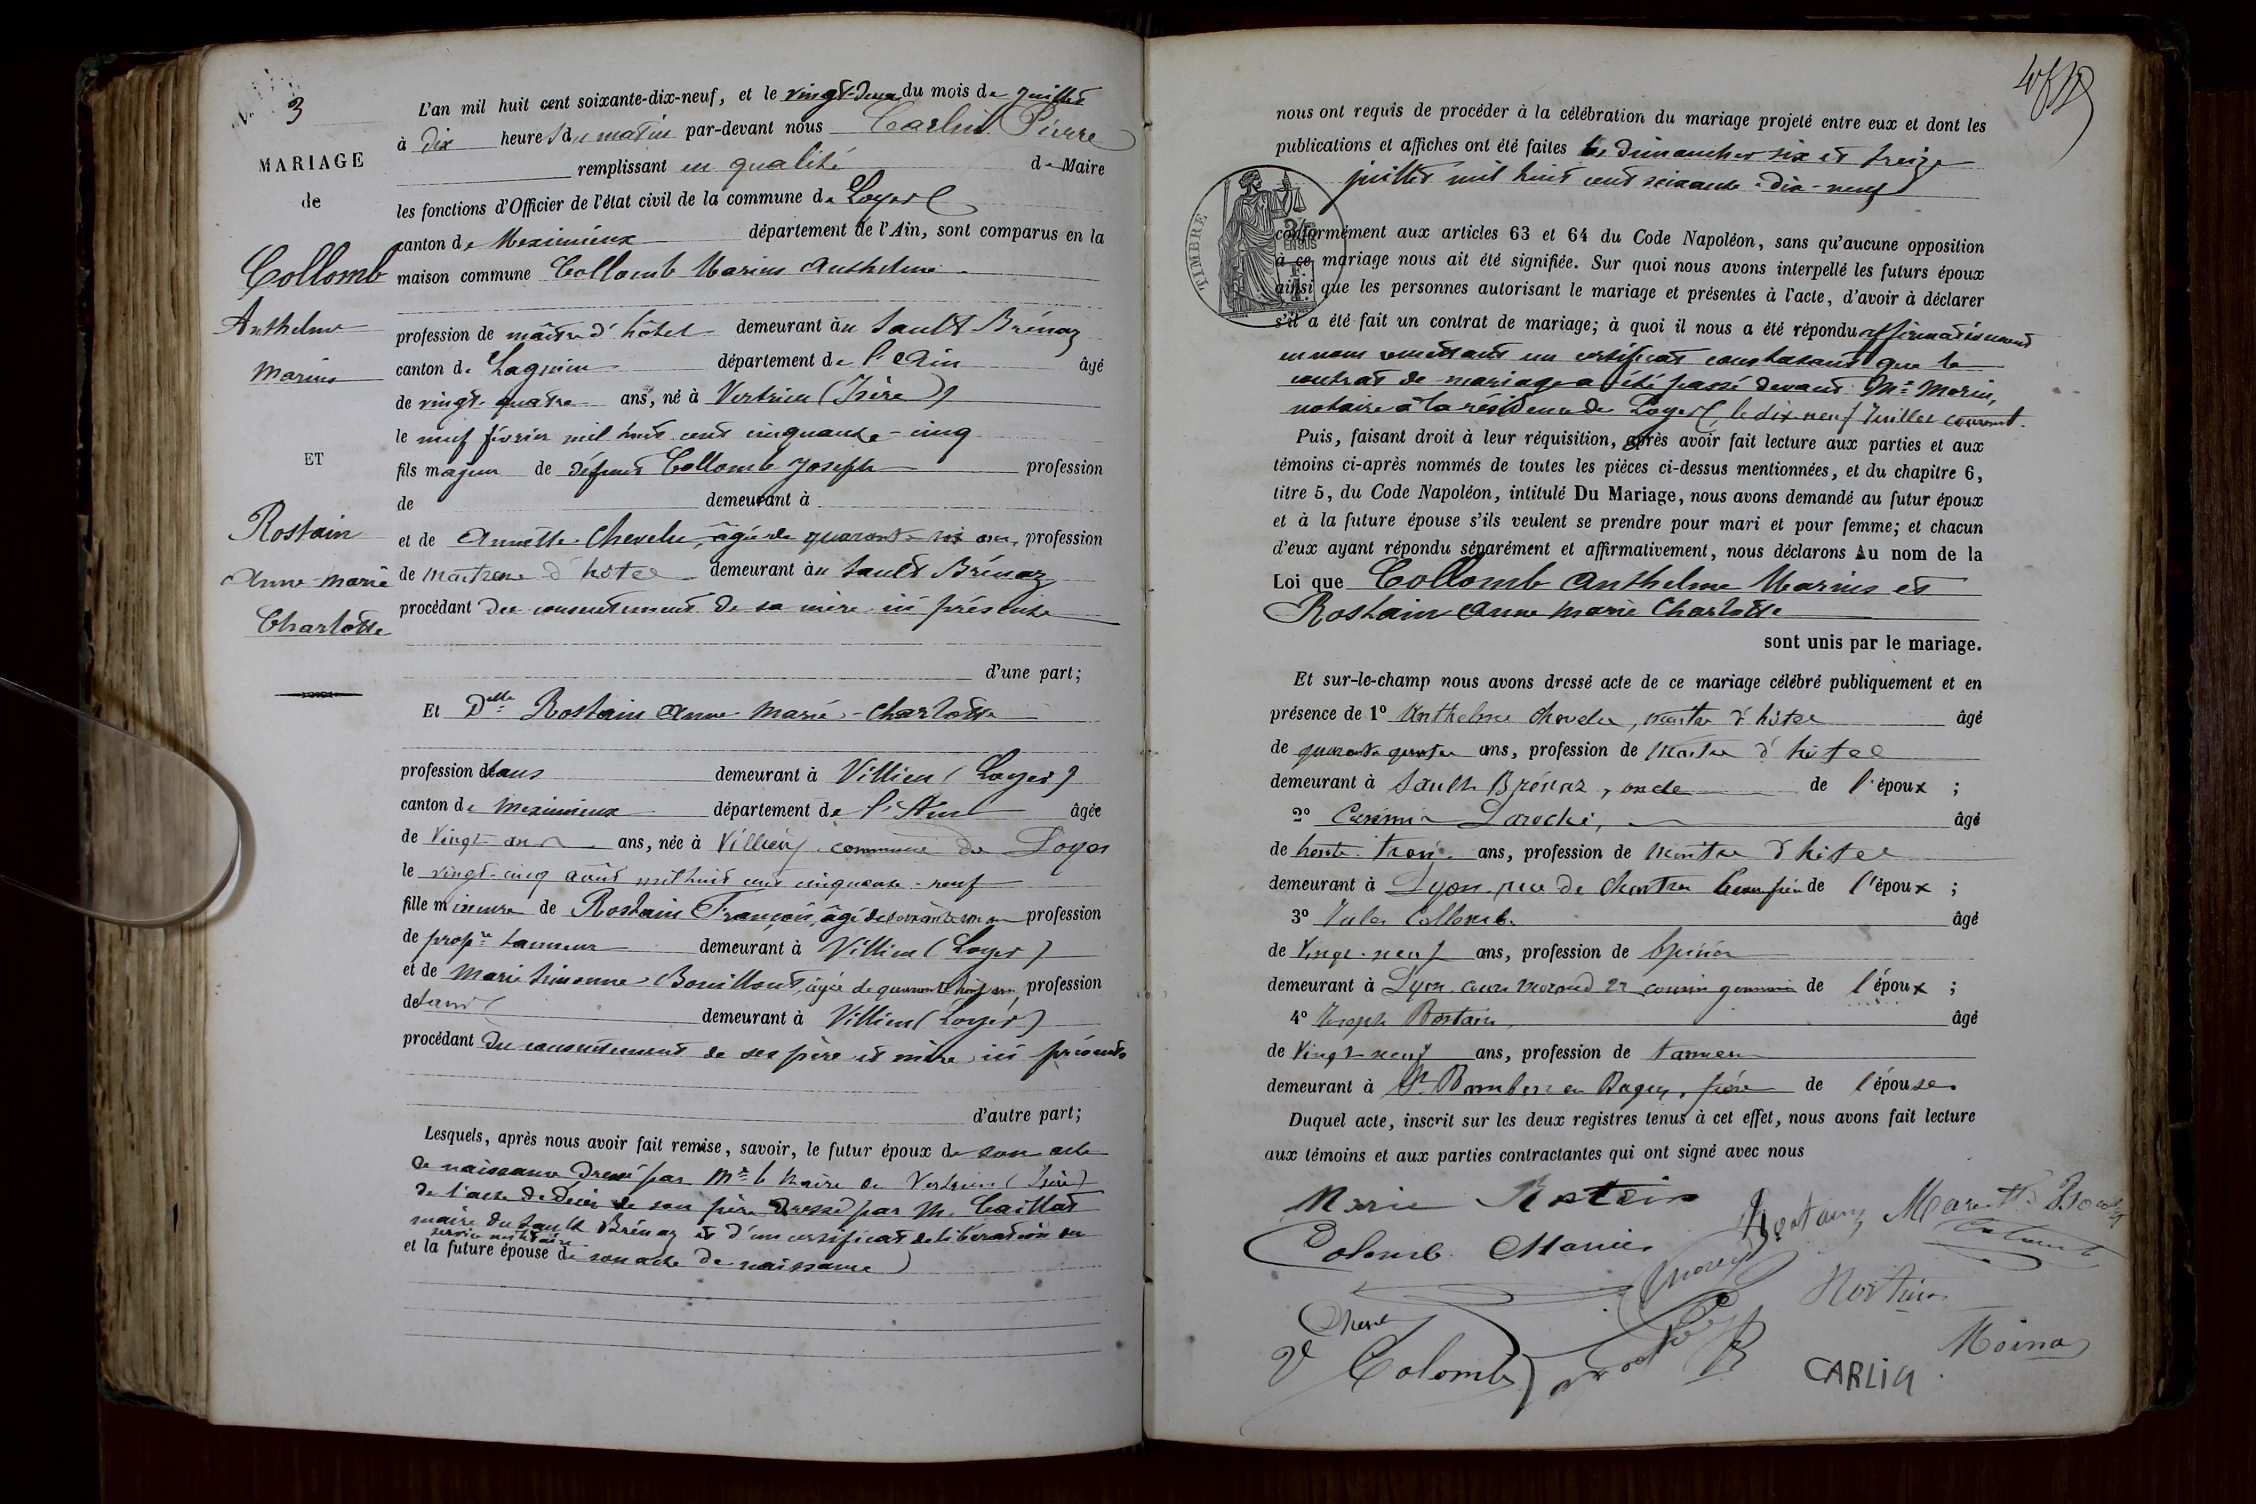 3
MARIAGE
de
Collomb
Anthelme
Marius
ET
Rostain
Anne Marie
Charlotte
L'an mil huit cent soixante-dix-neuf, et le vingt-deux du mois de juillet
à dix heures du matin par-devant nous Carlin Pierre
remplissant en qualité de Maire
les fonctions d'Officier de l'état civil de la commune de Loyes
canton de Meximieux département de l'Ain, sont comparus en la
maison commune Collomb Marius Anthelme
profession de maître d'hôtel demeurant au Sault Brénaz
canton de Lagnieu département de l'Ain âgé
de vingt-quatre ans, né à Vertrieu (Isère)
le neuf février mil huit cent cinquante-cinq
fils majeur de défunt Collomb Joseph profession
de demeurant à
et de Annette Chevelu, âgée de quarante six ans, profession
de maitresse d'hotel demeurant au Sault Brénaz
procédant du consentement de sa mère ici présente
d'une part;
Et Delle Rostain Anne Marie-Charlotte
profession de sans demeurant à Villieu (Loyes)
canton de Meximieux département de l'Ain âgée
de vingt ans ans, née à Villieu commune de Loyes
le vingt-cinq août mil huit cent cinquante-neuf
fille mineure de Rostain François, âgé de soixante un an profession
de propre tanneur demeurant à Villieu (Loyes)
et de Marie Simonne Bouilloud, âgée de quarante neuf ans, profession
de sans demeurant à Villieu (Loyes)
procédant du consentement de ses père et mère ici présents
d'autre part;
Lesquels, après nous avoir fait remise, savoir, le futur époux de son acte
de naissance dressé par Mr le Maire de Vertrieu (Isère)
de l'acte de décès de son père dressé par M. Caillat
maire du Sault Brénaz et d'un certificat de libération du
service militaire
et la future épouse de son acte de naissance
nous ont requis de procéder à la célébration du mariage projeté entre eux et dont les
publications et affiches ont été faites les dimanches six et treize
juillet mil huit cent soixante-dix-neuf
TIMBRE
conformément aux articles 63 et 64 du Code Napoléon, sans qu'aucune opposition
à ce mariage nous ait été signifiée. Sur quoi nous avons interpellé les futurs époux
ainsi que les personnes autorisant le mariage et présentes à l'acte, d'avoir à déclarer
s'il a été fait un contrat de mariage; à quoi il nous a été répondu affirmativement
en nous remettant un certificat constatant que le
contrat de mariage a été passé devant Me Morin,
notaire à la résidence de Loyes le dix neuf Juillet courant.
Puis, faisant droit à leur réquisition, après avoir fait lecture aux parties et aux
témoins ci-après nommés de toutes les pièces ci-dessus mentionnées, et du chapitre 6,
titre 5, du Code Napoléon, intitulé Du Mariage, nous avons demandé au futur époux
et à la future épouse s'ils veulent se prendre pour mari et pour femme; et chacun
d'eux ayant répondu séparément et affirmativement, nous déclarons Au nom de la
Loi que Collomb Anthelme Marius et
Rostain Anne Marie Charlotte
sont unis par le mariage.
Et sur-le-champ nous avons dressé acte de ce mariage célébré publiquement et en
présence de 1° Anthelme Chevelu, maître d'hôtel âgé
de quarante quatre ans, profession de Maître d'hôtel
demeurant à Sault Brénaz, oncle de l'époux ;
2° Casimir Laroche, âgé
de trente-trois ans, profession de Maître d'hôtel
demeurant à Lyon, rue de Chartres beau frère de l'époux ;
3° Jules Collomb âgé
de Vingt-neuf ans, profession de Epicier
demeurant à Lyon cours Morand 22 cousin germain de l'époux ;
4° Joseph Rostain, âgé
de Vingt neuf ans, profession de tanneur
demeurant à St Rambert en Bugey, frère de l'épouse.
Duquel acte, inscrit sur les deux registres tenus à cet effet, nous avons fait lecture
aux témoins et aux parties contractantes qui ont signé avec nous
Marie Rostain
Rostain
Colomb Marius
Rostain
Chevelu
Ve Colomb
CARLIN